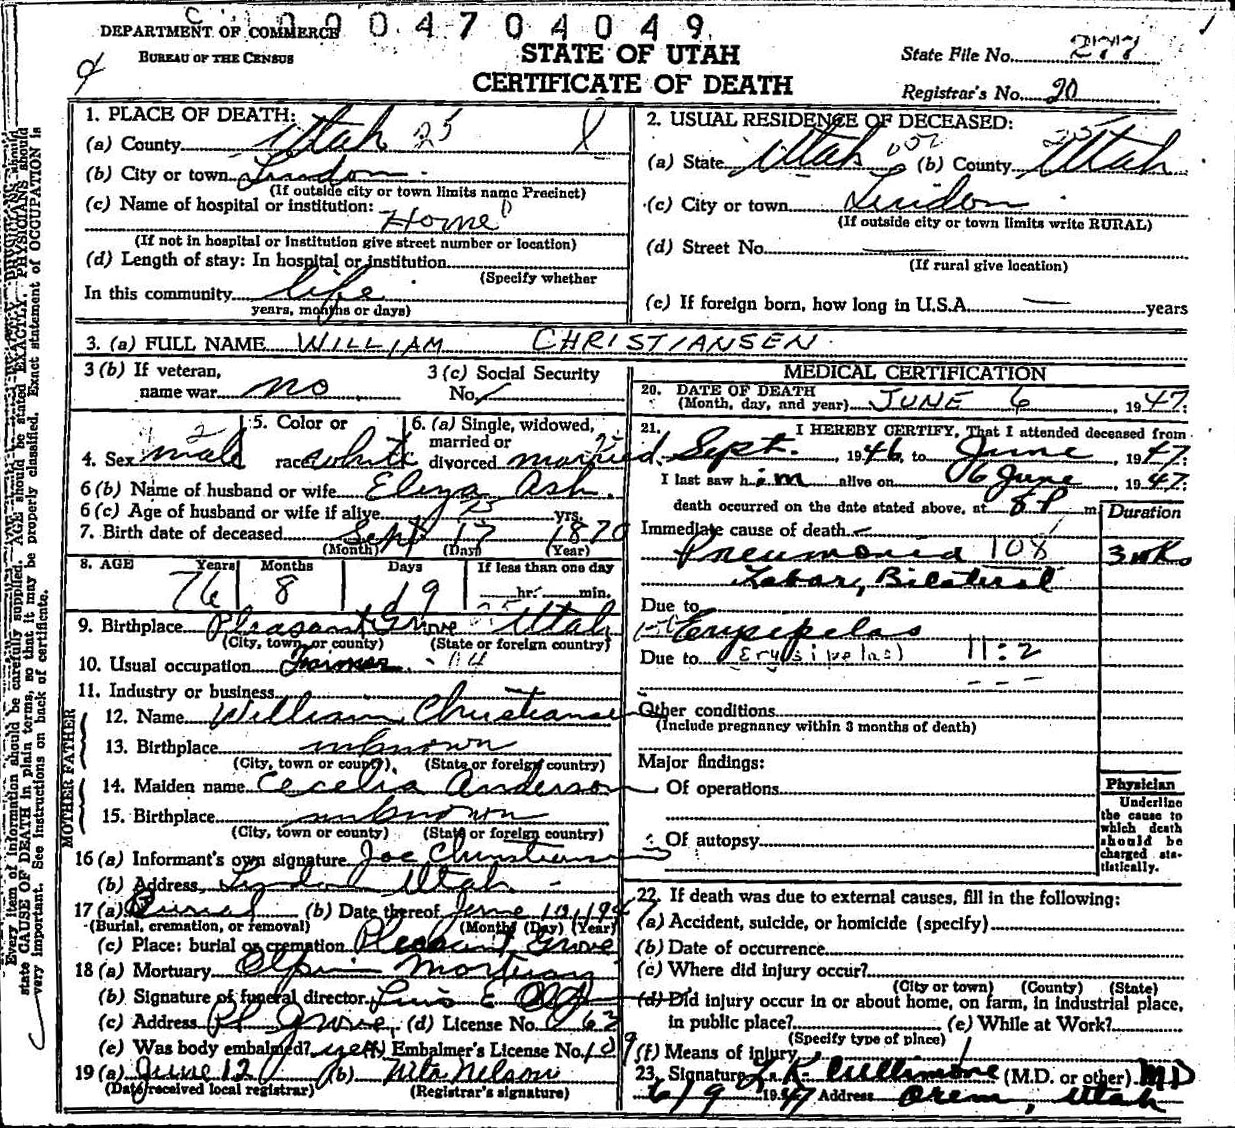 C 0 0 0 4 7 0 4 0 4 9
DEPARTMENT OF COMMERCE
BUREAU OF THE CENSUS
STATE OF UTAH
CERTIFICATE OF DEATH
State File No. 277
Registrar's No. 20
1. PLACE OF DEATH:
(a) County Utah 25
(b) City or town Lindon
(If outside city or town limits name Precinct)
(c) Name of hospital or institution:
Home
(If not in hospital or institution give street number or location)
(d) Length of stay: In hospital or institution
(Specify whether
In this community life
years, months or days)
2. USUAL RESIDENCE OF DECEASED:
(a) State Utah (b) County Utah
(c) City or town Lindon
(If outside city or town limits write RURAL)
(d) Street No.
(If rural give location)
(e) If foreign born, how long in U.S.A. years
3. (a) FULL NAME WILLIAM CHRISTIANSEN
3 (b) If veteran,
name war no
3 (c) Social Security
No.
4. Sex male
5. Color or
race white
6. (a) Single, widowed,
married or
divorced married
6 (b) Name of husband or wife Eliza Ash
6 (c) Age of husband or wife if alive 75 yrs.
7. Birth date of deceased Sept 17 1870
(Month) (Day) (Year)
8. AGE Years Months Days If less than one day
76 8 19 hr. min.
9. Birthplace Pleasant Grove Utah
(City, town or county) (State or foreign country)
10. Usual occupation Farmer
11. Industry or business
FATHER
12. Name William Christiansen
13. Birthplace unknown
(City, town or county) (State or foreign country)
MOTHER
14. Maiden name Cecelia Anderson
15. Birthplace unknown
(City, town or county) (State or foreign country)
16 (a) Informant's own signature Joe Christiansen
(b) Address Lindon Utah
17 (a) Burial (b) Date thereof June 10, 1947
(Burial, cremation, or removal) (Month) (Day) (Year)
(c) Place: burial or cremation Pleasant Grove
18 (a) Mortuary Olpin Mortuary
(b) Signature of funeral director
(c) Address Pl Grove (d) License No. 63
(e) Was body embalmed? yes (f) Embalmer's License No. 109
19 (a) June 12 (b) Nita Nelson
(Date received local registrar) (Registrar's signature)
MEDICAL CERTIFICATION
20. DATE OF DEATH
(Month, day, and year) JUNE 6, 1947.
21. I HEREBY CERTIFY, That I attended deceased from
Sept. 1946, to June, 1947.
I last saw him alive on 6 June, 1947.
death occurred on the date stated above, at 8 P m.
Duration
Immediate cause of death
Pneumonia 108 3 wks
Lobar, Bilateral
Due to
Erysipelas
Due to (Erysipelas) 11:2
Other conditions
(Include pregnancy within 3 months of death)
Major findings:
Of operations
Of autopsy
Physician
Underline
the cause to
which death
should be
charged sta-
tistically.
22. If death was due to external causes, fill in the following:
(a) Accident, suicide, or homicide (specify)
(b) Date of occurrence
(c) Where did injury occur?
(City or town) (County) (State)
(d) Did injury occur in or about home, on farm, in industrial place,
in public place? (e) While at Work?
(Specify type of place)
(f) Means of injury
23. Signature L. K. Cullimore (M.D. or other) MD
6/9 1947 Address Orem, Utah
Every item of information should be carefully supplied. AGE should be stated EXACTLY. PHYSICIANS should
state CAUSE OF DEATH in plain terms, so that it may be properly classified. Exact statement of OCCUPATION is
very important. See instructions on back of certificate.